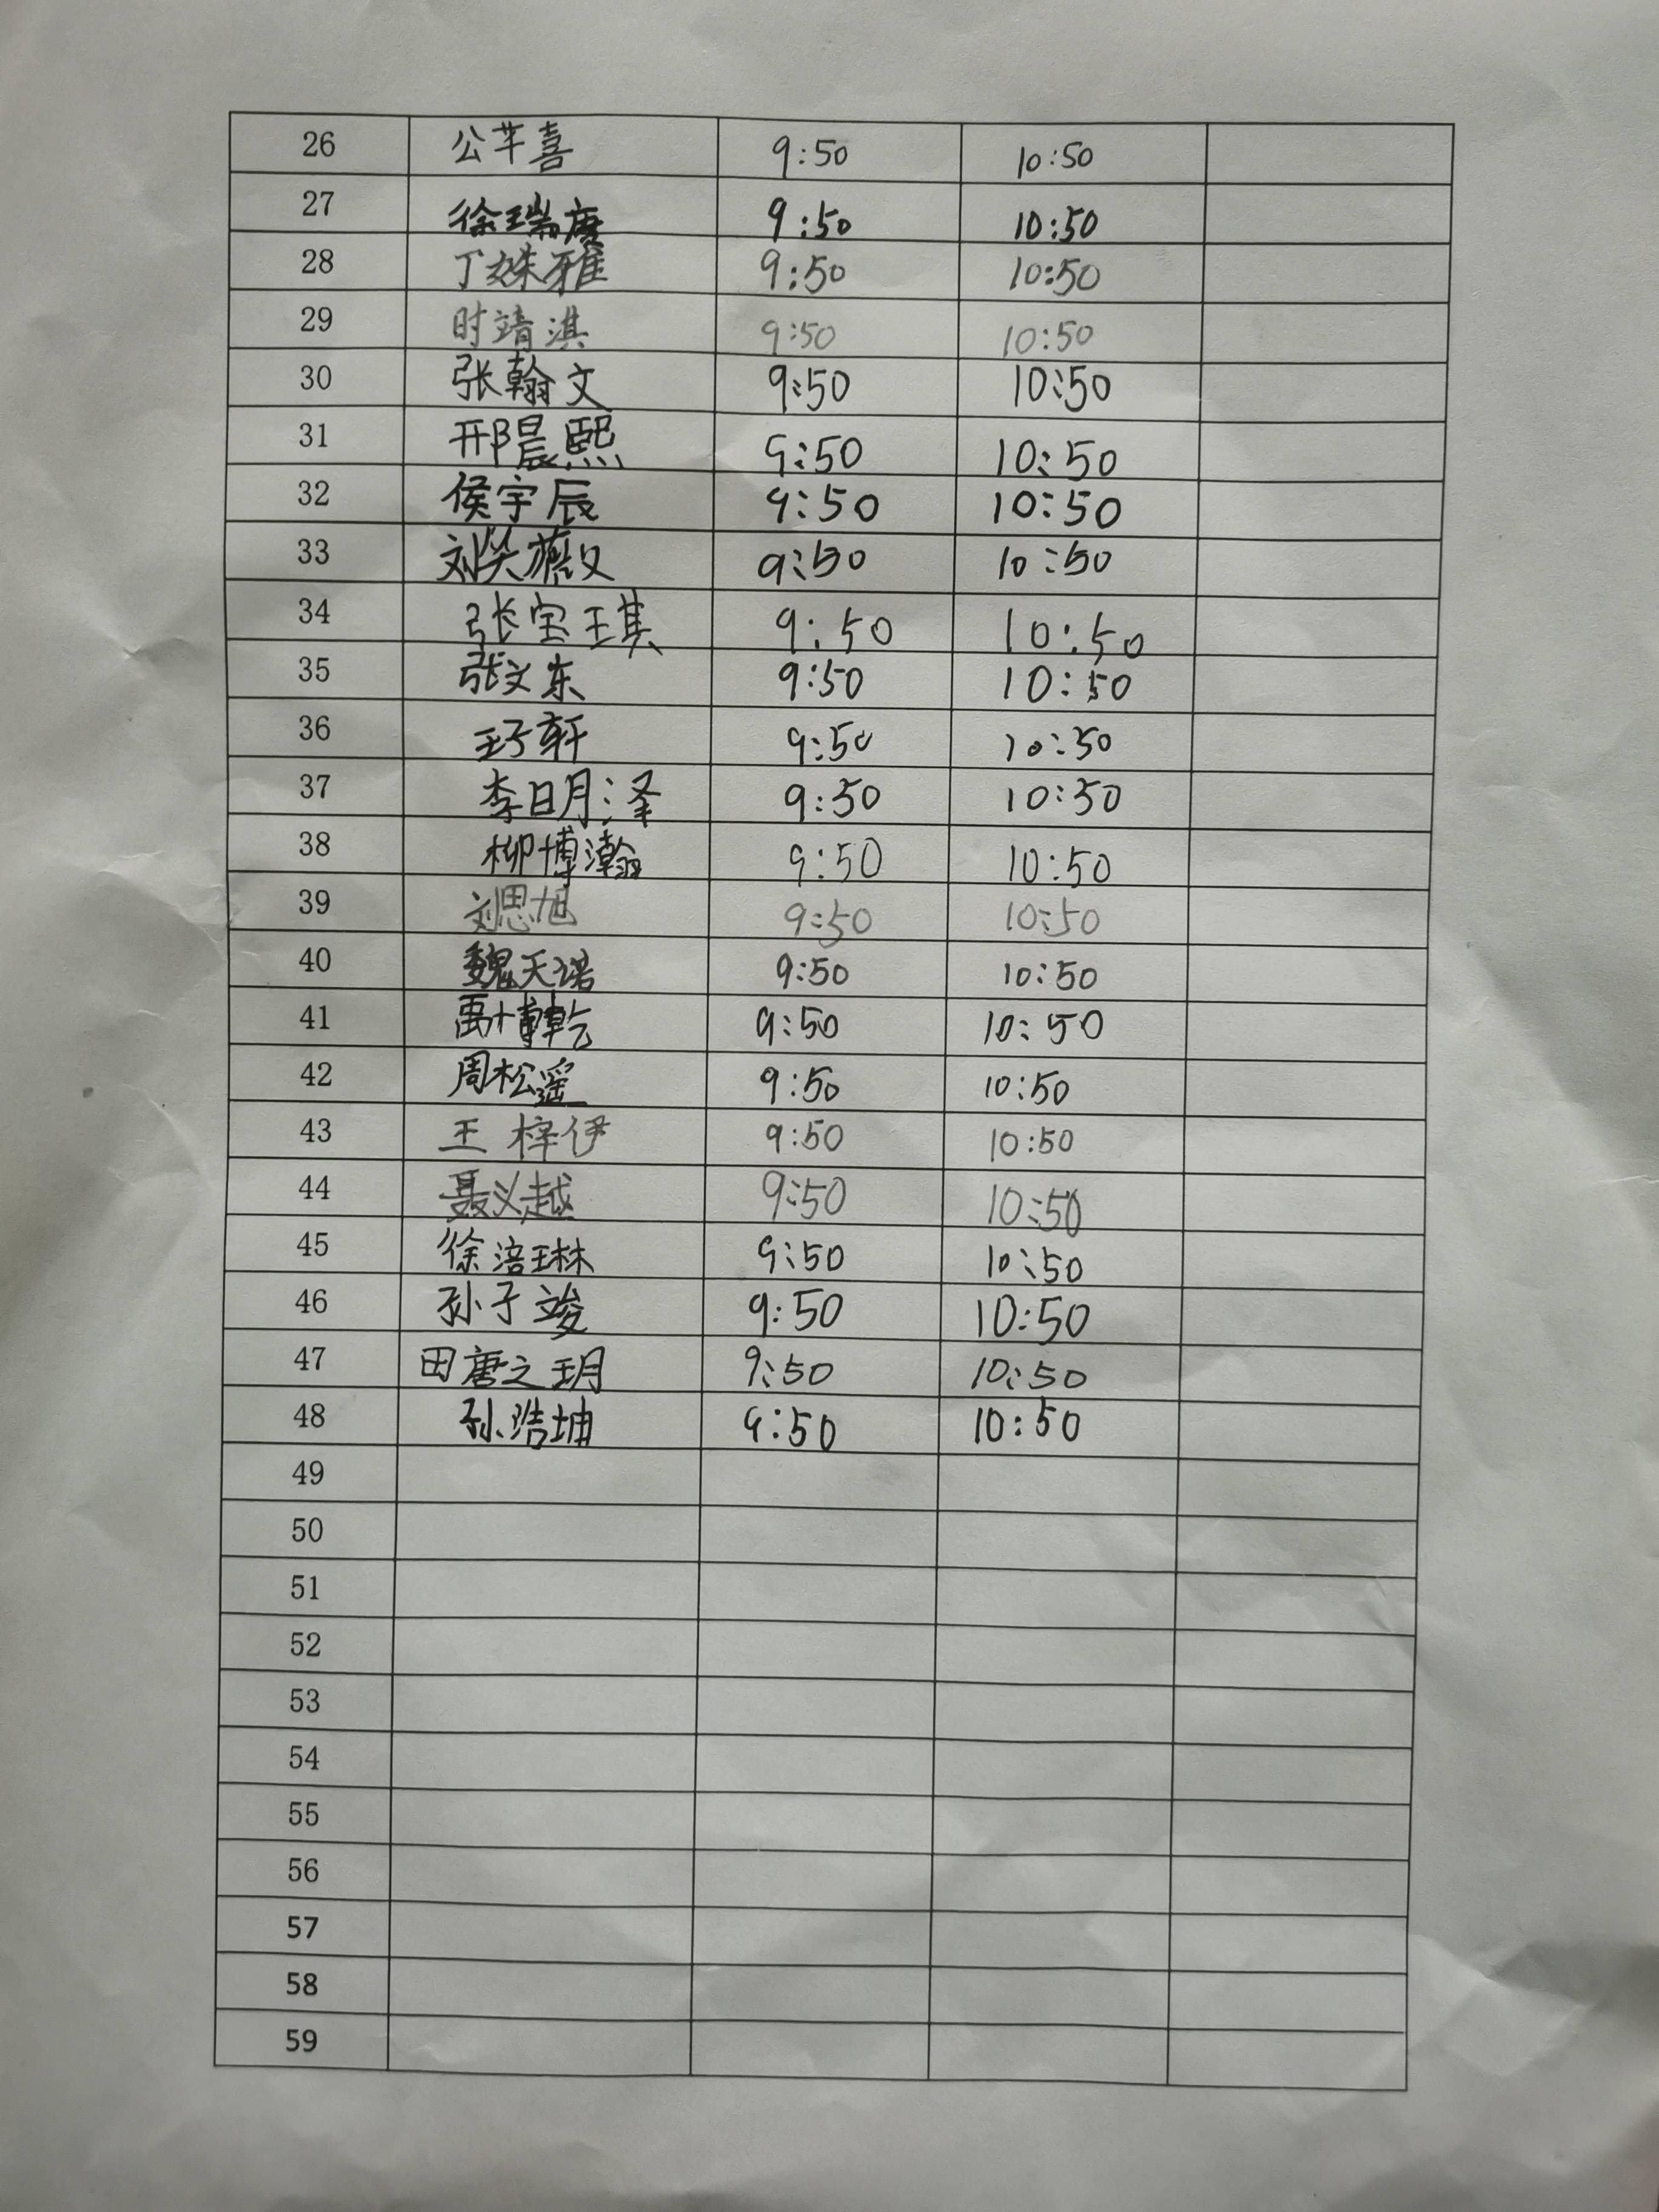 26 公芊喜 9:50 10:50
27 徐瑞唐 9:50 10:50
28 丁姝雅 9:50 10:50
29 时靖淇 9:50 10:50
30 张翰文 9:50 10:50
31 邢晨熙 9:50 10:50
32 侯宇辰 9:50 10:50
33 刘笑薇 9:50 10:50
34 张宝琪 9:50 10:50
35 张文东 9:50 10:50
36 王子轩 9:50 10:50
37 李明泽 9:50 10:50
38 柳博瀚 9:50 10:50
39 刘思旭 9:50 10:50
40 魏天诺 9:50 10:50
41 禹博乾 9:50 10:50
42 周松遥 9:50 10:50
43 王梓伊 9:50 10:50
44 聂义越 9:50 10:50
45 徐涪琳 9:50 10:50
46 孙子竣 9:50 10:50
47 田唐之玥 9:50 10:50
48 孙浩坤 9:50 10:50
49
50
51
52
53
54
55
56
57
58
59